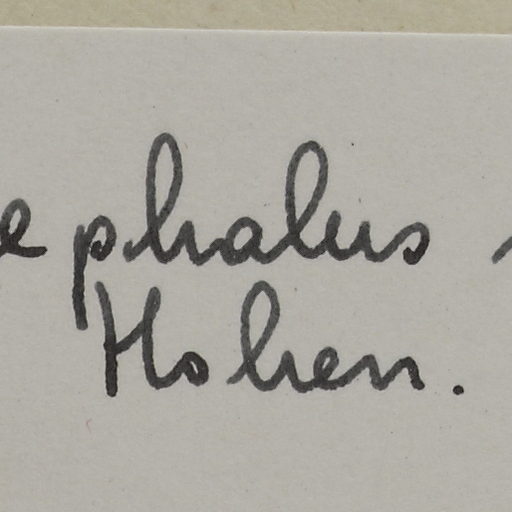 ephalus
Hohen.